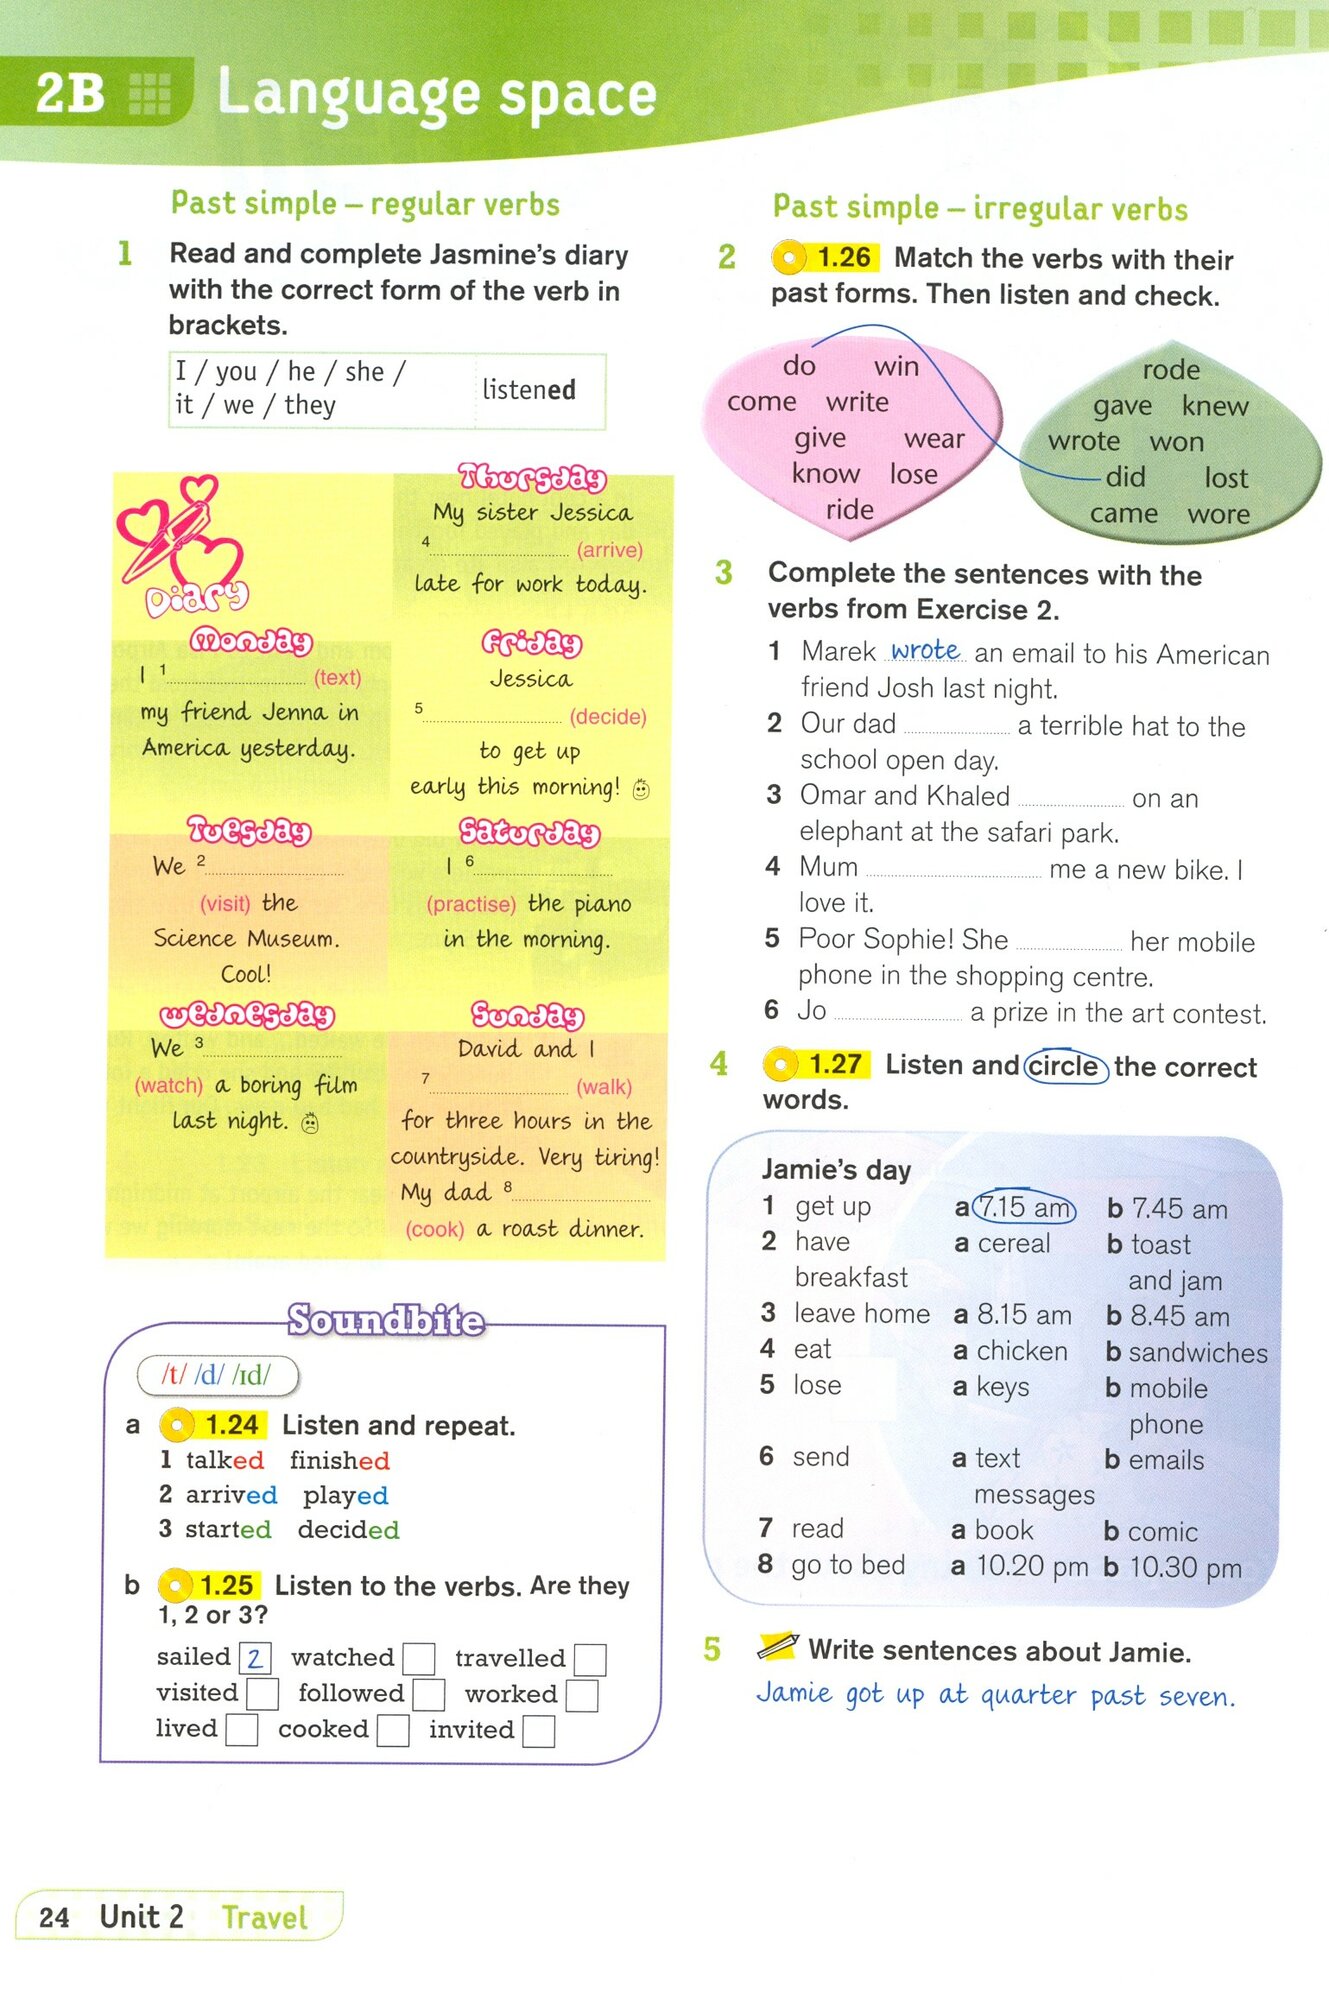 2B Language space
Past simple – regular verbs
1 Read and complete Jasmine's diary
with the correct form of the verb in
brackets.
I / you / he / she /
it / we / they
listened
Diary
Monday
I 1 (text)
my friend Jenna in
America yesterday.
Tuesday
We 2
(visit) the
Science Museum.
Cool!
Wednesday
We 3
(watch) a boring film
last night.
Thursday
My sister Jessica
4 (arrive)
late for work today.
Friday
Jessica
5 (decide)
to get up
early this morning!
Saturday
I 6
(practise) the piano
in the morning.
Sunday
David and I
7 (walk)
for three hours in the
countryside. Very tiring!
My dad 8
(cook) a roast dinner.
Soundbite
/t/ /d/ /ɪd/
a 1.24 Listen and repeat.
1 talked finished
2 arrived played
3 started decided
b 1.25 Listen to the verbs. Are they
1, 2 or 3?
sailed 2 watched travelled
visited followed worked
lived cooked invited
Past simple – irregular verbs
2 1.26 Match the verbs with their
past forms. Then listen and check.
do win
come write
give wear
know lose
ride
rode
gave knew
wrote won
did lost
came wore
3 Complete the sentences with the
verbs from Exercise 2.
1 Marek wrote an email to his American
friend Josh last night.
2 Our dad a terrible hat to the
school open day.
3 Omar and Khaled on an
elephant at the safari park.
4 Mum me a new bike. I
love it.
5 Poor Sophie! She her mobile
phone in the shopping centre.
6 Jo a prize in the art contest.
4 1.27 Listen and circle the correct
words.
Jamie's day
1 get up a 7.15 am b 7.45 am
2 have a cereal b toast
breakfast and jam
3 leave home a 8.15 am b 8.45 am
4 eat a chicken b sandwiches
5 lose a keys b mobile
phone
6 send a text b emails
messages
7 read a book b comic
8 go to bed a 10.20 pm b 10.30 pm
5 Write sentences about Jamie.
Jamie got up at quarter past seven.
24 Unit 2 Travel